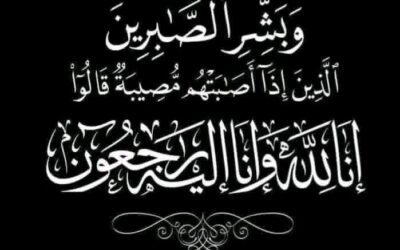 وَبَشِّرِ الصَّابِرِينَ
الَّذِينَ إِذَآ أَصَابَتْهُم مُّصِيبَةٌ قَالُوٓا۟
إِنَّا لِلَّهِ وَإِنَّآ إِلَيْهِ رَاجِعُونَ